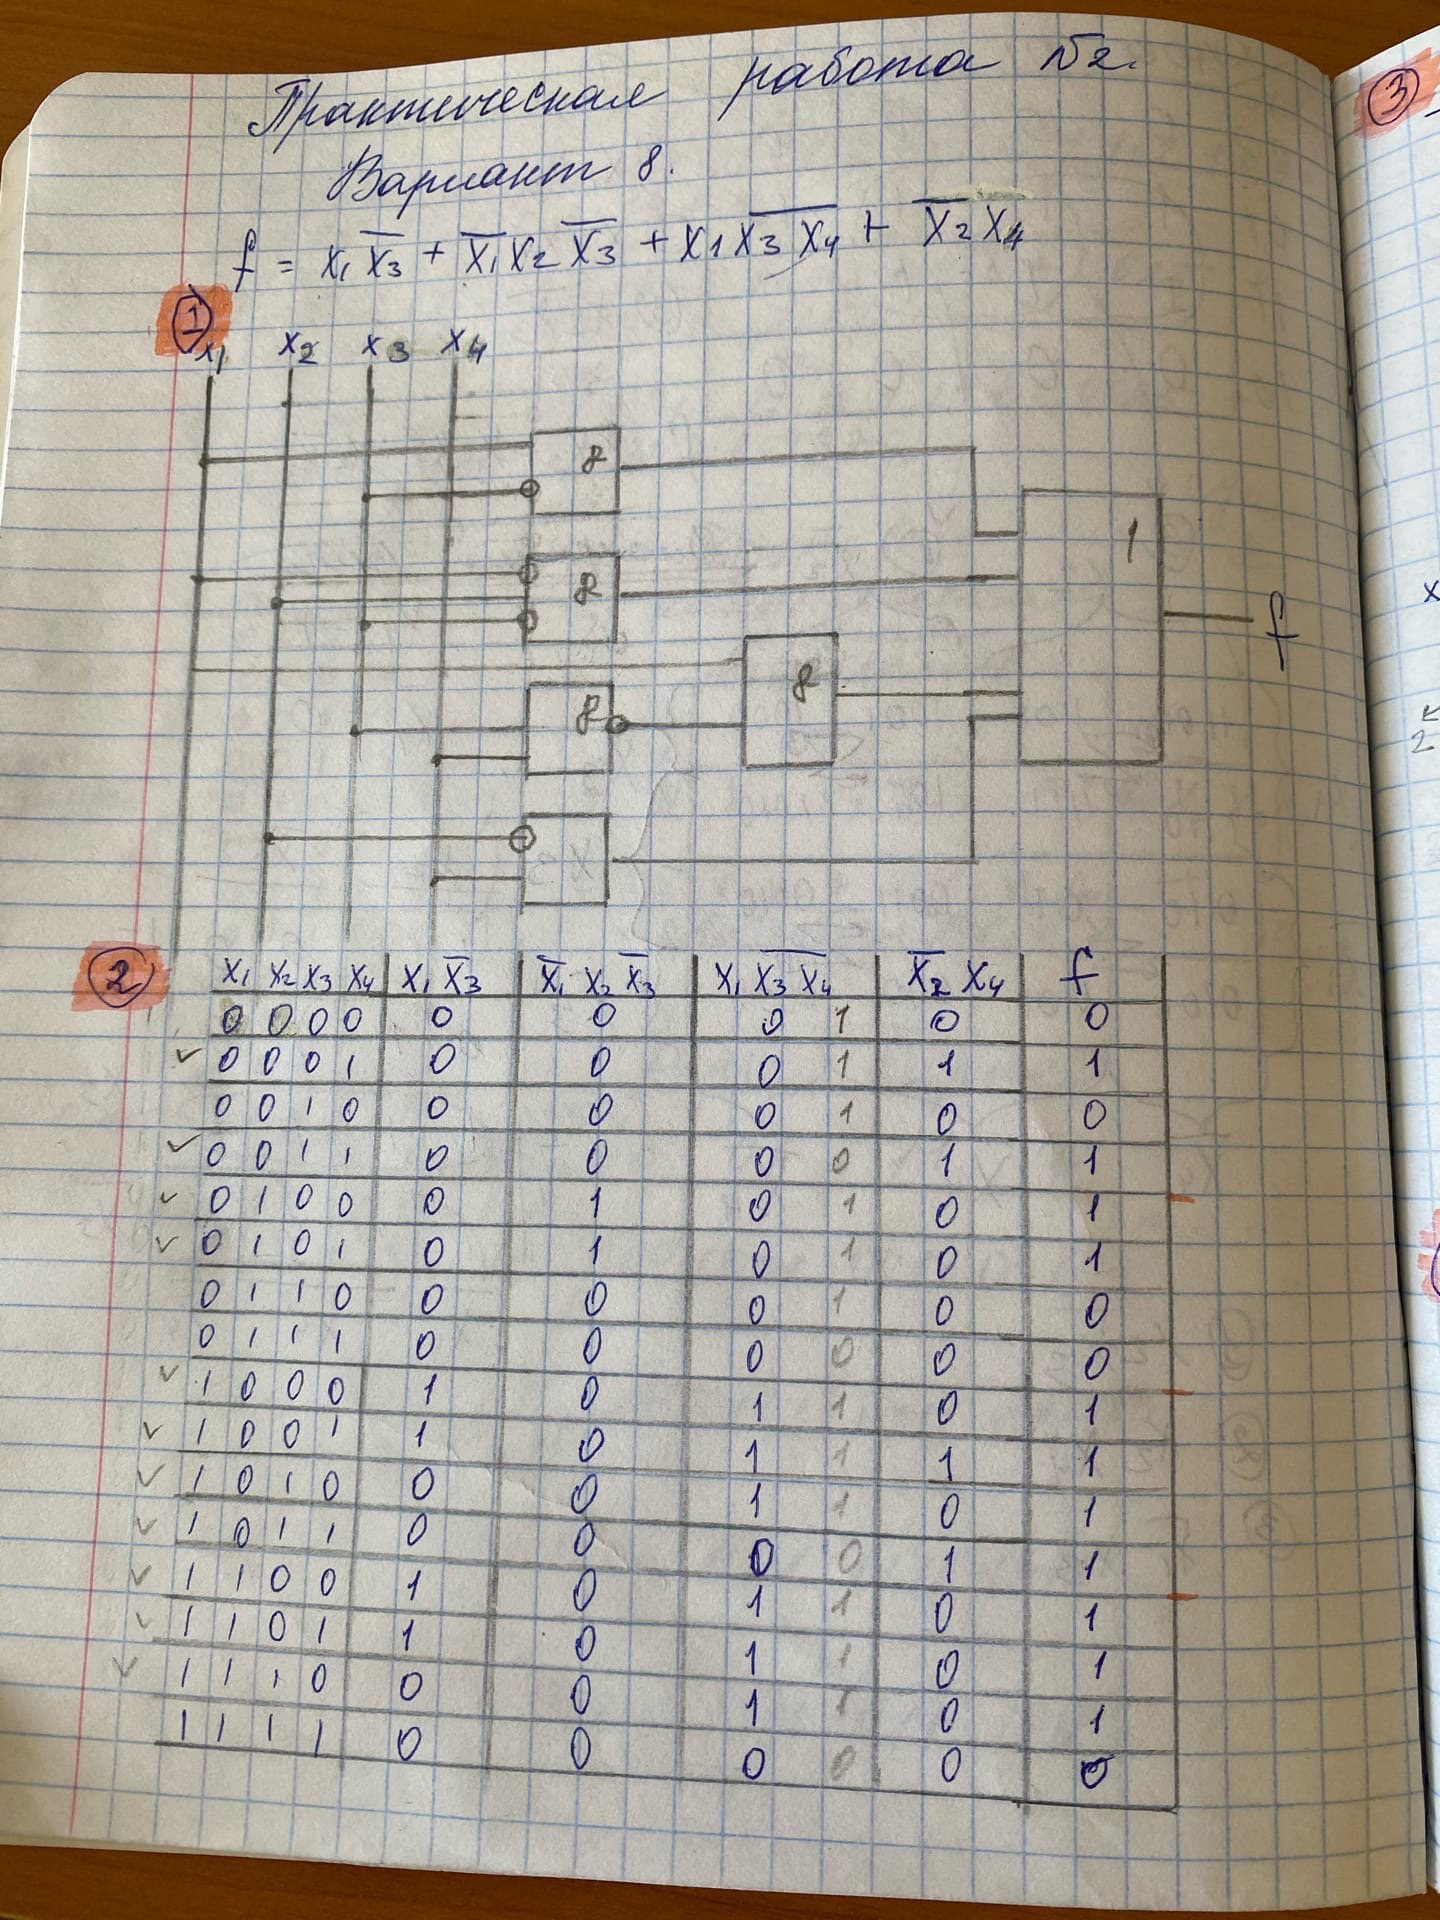 Практическая работа №2.
Вариант 8.
f = x₁x̅₃ + x̅₁x₂x̅₃ + x₁\overline{x₃x₄} + x̅₂x₄
1
x₁ x₂ x₃ x₄
&
1
&
f
&
&
2
x₁ x₂ x₃ x₄ x₁x̅₃ x̅₁x₂x̅₃ x₁\overline{x₃x₄} x̅₂x₄ f
0 0 0 0 0 0 0 1 0 0
✓ 0 0 0 1 0 0 0 1 1 1
0 0 1 0 0 0 0 1 0 0
✓ 0 0 1 1 0 0 0 0 1 1
✓ 0 1 0 0 0 1 0 1 0 1
✓ 0 1 0 1 0 1 0 1 0 1
0 1 1 0 0 0 0 1 0 0
0 1 1 1 0 0 0 0 0 0
✓ 1 0 0 0 1 0 1 1 0 1
✓ 1 0 0 1 1 0 1 1 1 1
✓ 1 0 1 0 0 0 1 1 0 1
✓ 1 0 1 1 0 0 0 0 1 1
✓ 1 1 0 0 1 0 1 1 0 1
✓ 1 1 0 1 1 0 1 1 0 1
✓ 1 1 1 0 0 0 1 1 0 1
1 1 1 1 0 0 0 0 0 0
3
x
2